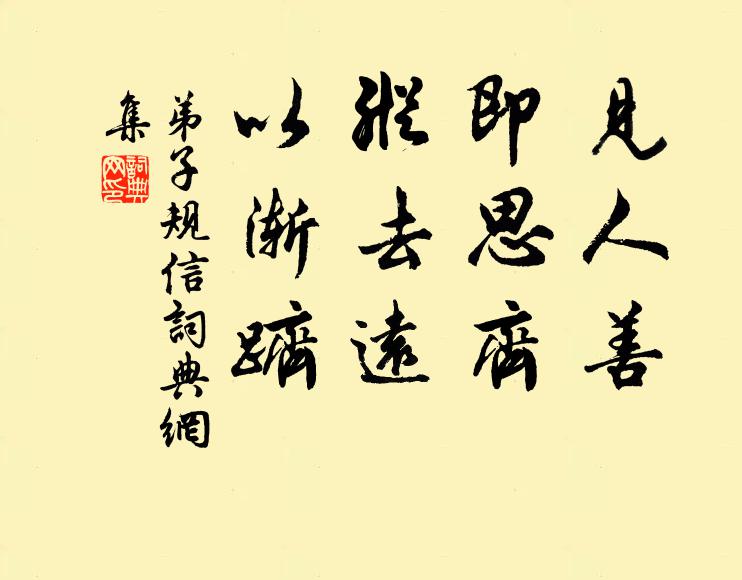 見人善
即思齊
縱去遠
以漸躋
弟子規信詞典網
集
詞典
网印